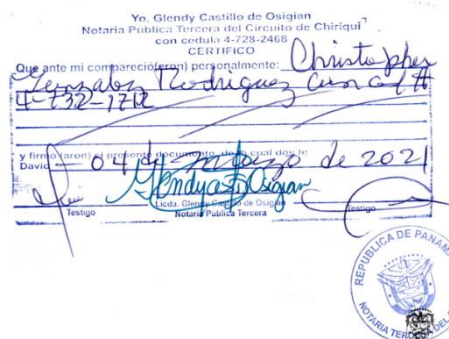 Yo. Glendy Castillo de Osigian
Notaria Pública Tercera del Circuito de Chiriquí
con cedula 4-728-2468
CERTIFICO
Que ante mi compareció(eron) personalmente: Christopher
Gonzalez Rodriguez con ced #
4-732-1712
y firmó(aron) el presente documento, de lo cual doy fe
David 04 de marzo de 2021
Testigo
Licda. Glendy Castillo de Osigian
Notaria Pública Tercera
Testigo
REPUBLICA DE PANAMA
NOTARIA TERCERA DEL